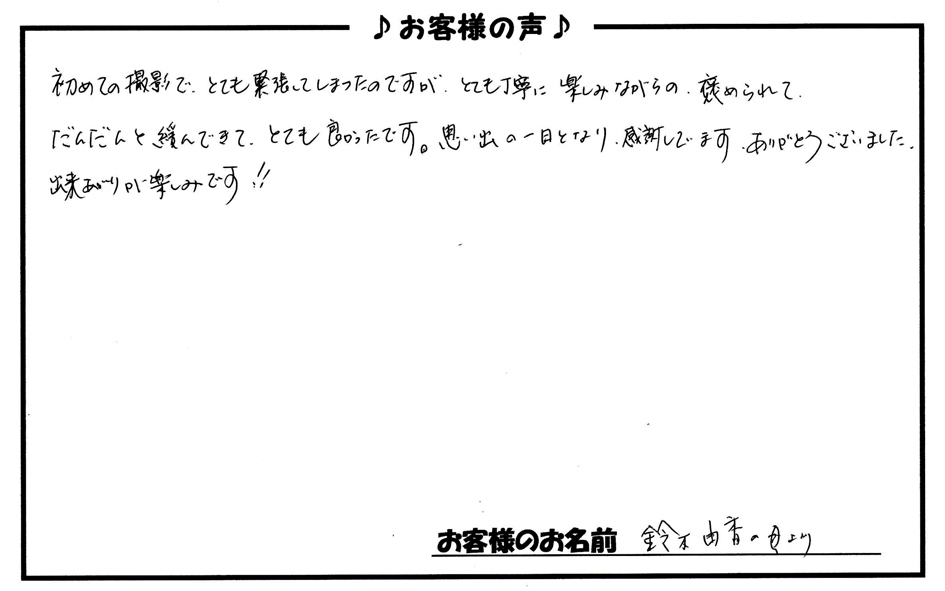 ♪お客様の声♪
初めての撮影で、とても緊張してしまったのですが、とても丁寧に楽しみながらの、褒められて、
だんだんと緩んできて、とても良かったです。思い出の一日となり、感謝してます、ありがとうございました。
出来あがりが楽しみです!!
お客様のお名前 鈴木由香の母より